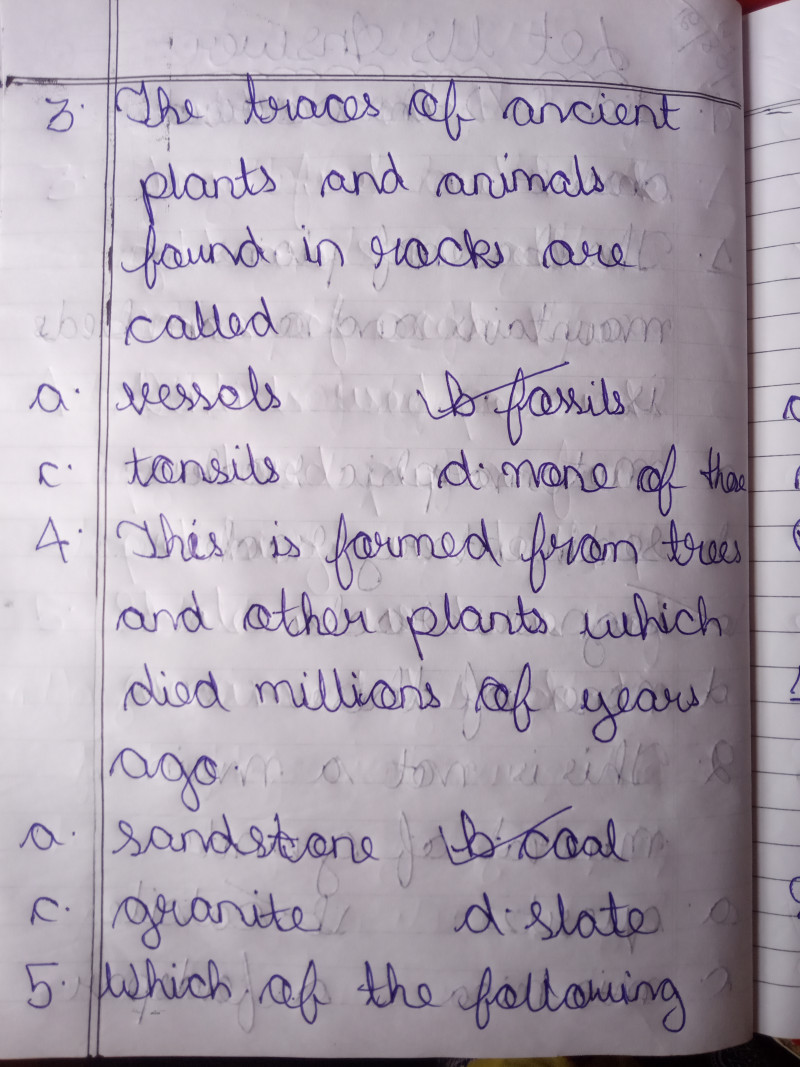 3. The traces of ancient
plants and animals
found in rocks are
called
a. vessels b. fossils
c. tonsils d. none of these
4. This is formed from trees
and other plants which
died millions of years
ago.
a. sandstone b. coal
c. granite d. slate
5. Which of the following